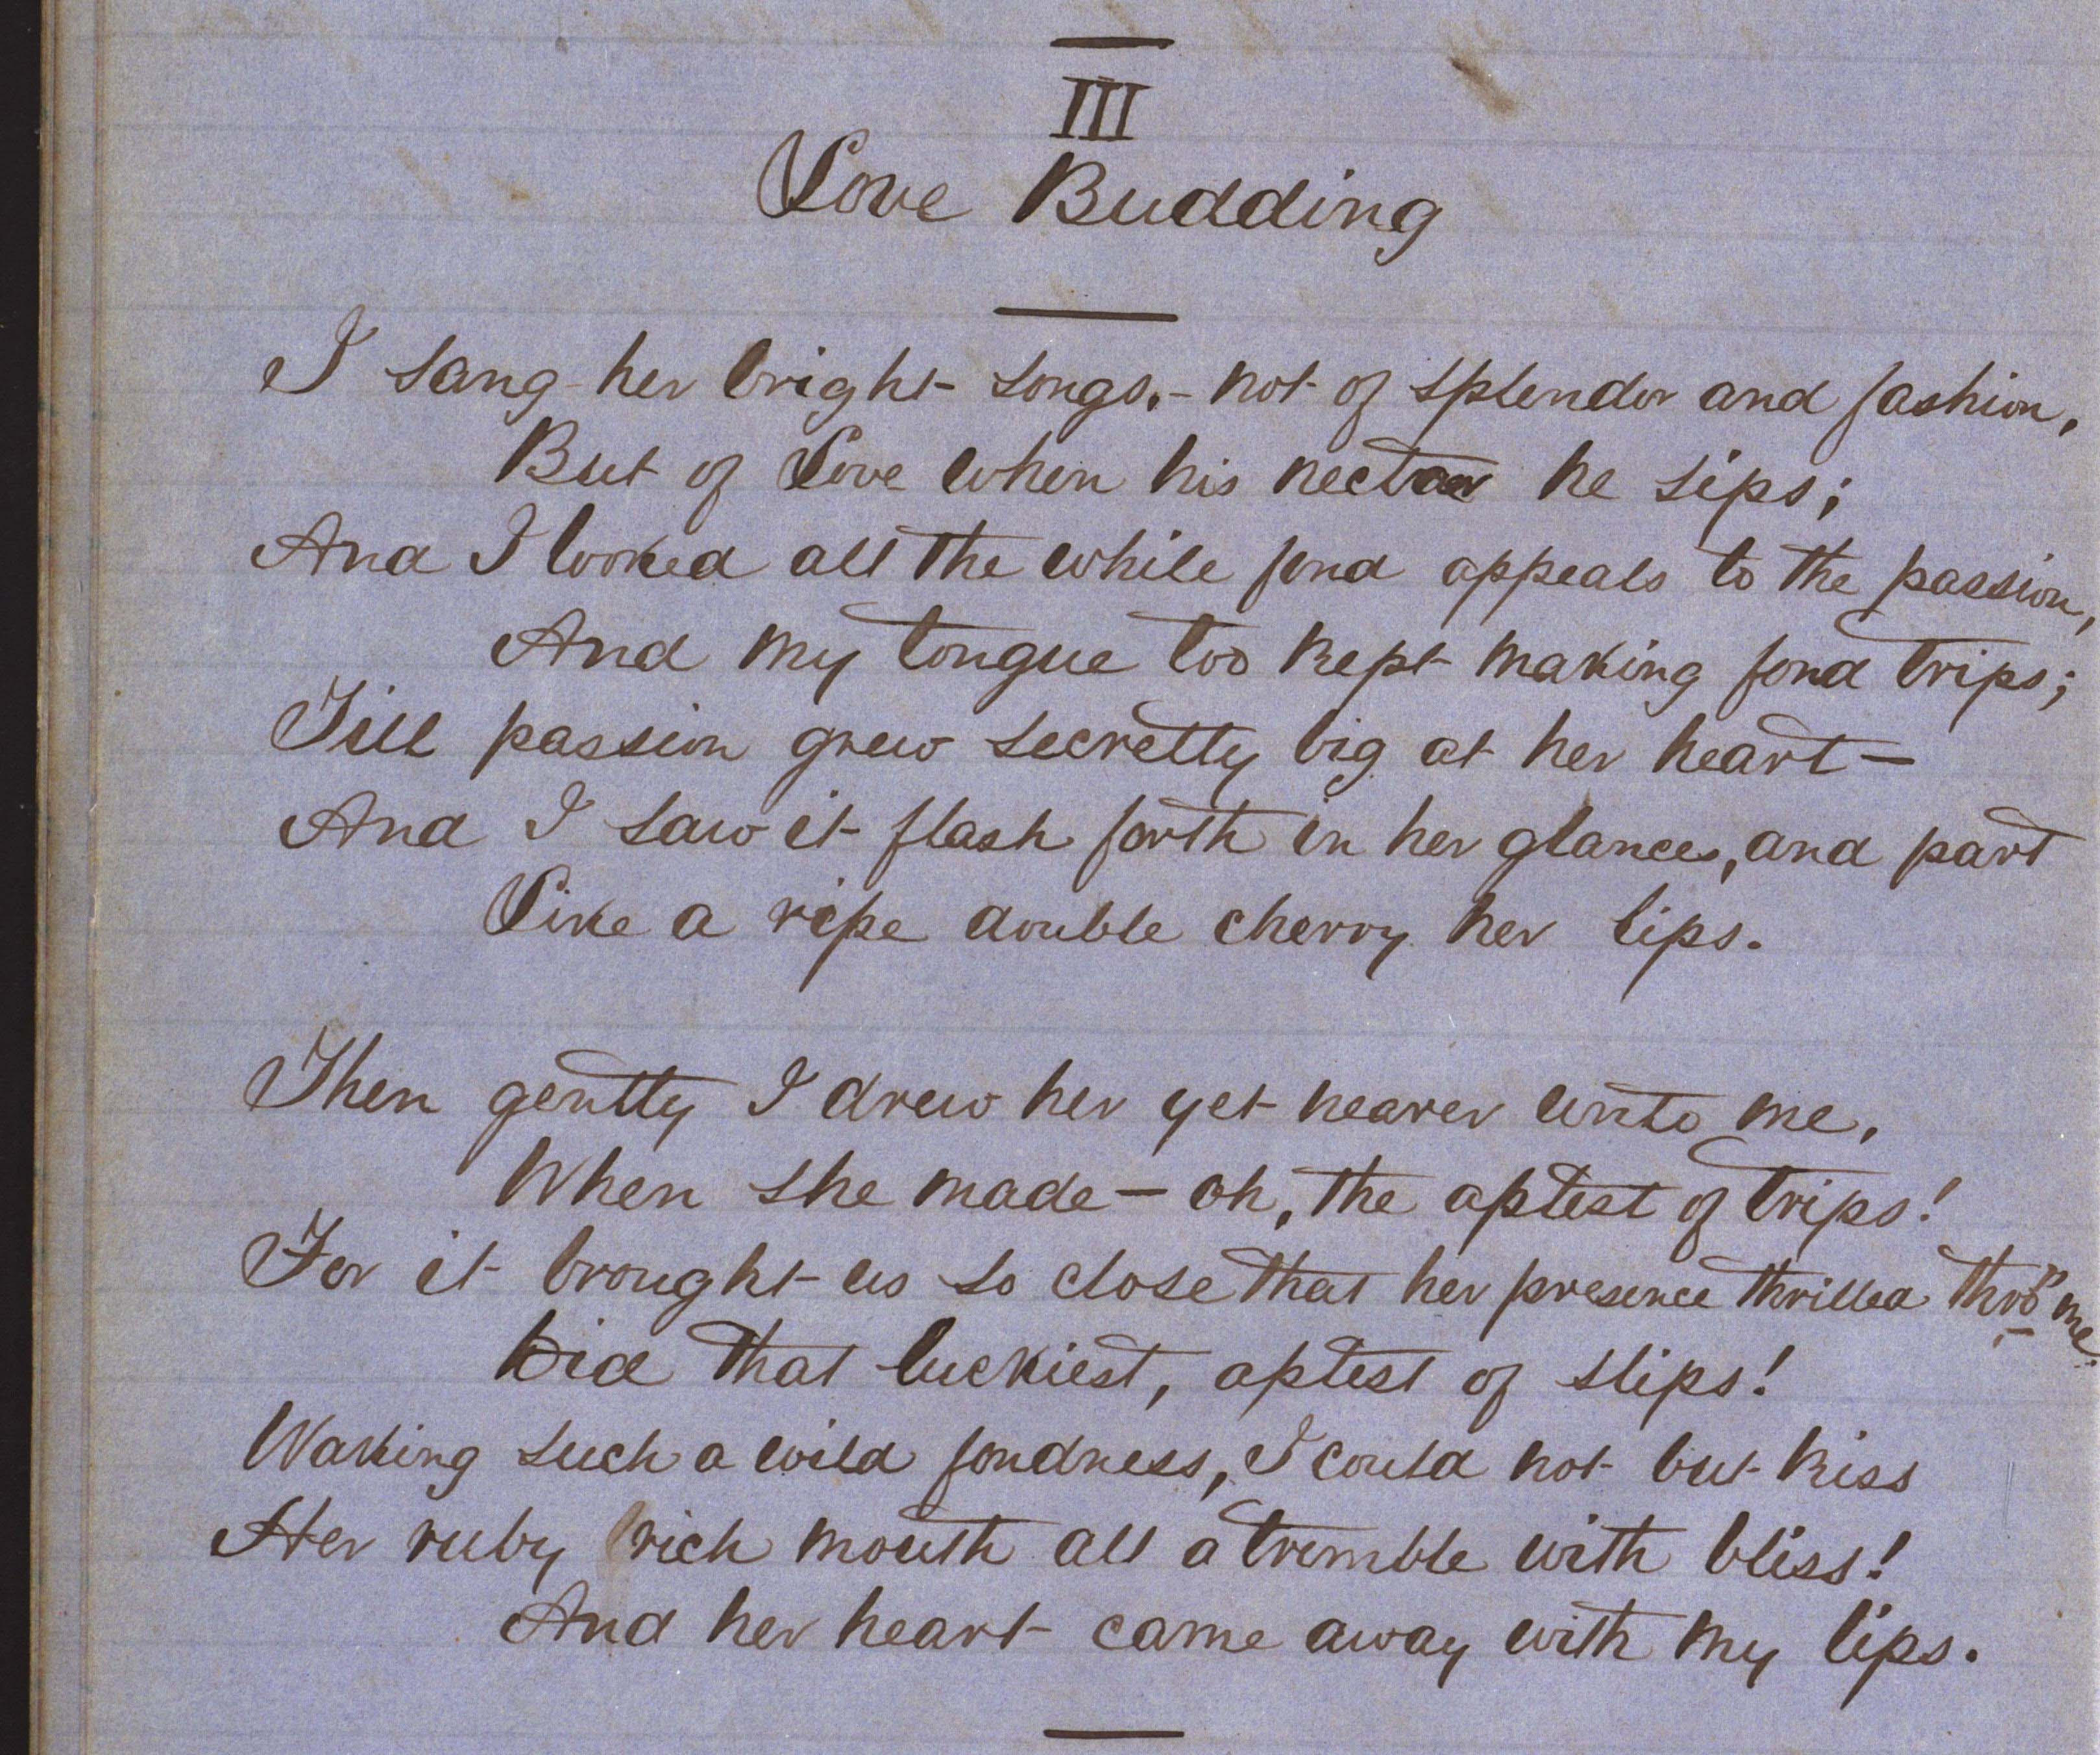 III
Love Budding
I sang her bright songs,- not of splendor and fashion,
But of Love when his nectar he sips;
And I looked all the while fond appeals to the passion,
And my tongue too kept making fond trips;
Till passion grew secretly big at her heart—
And I saw it flash forth in her glances, and part
Like a ripe double cherry her lips.
Then gently I drew her yet nearer unto me,
When she made — oh, the aptest of trips!
For it brought us so close that her presence thrilled thro' me
Did that luckiest, aptest of slips!
Waking such a wild fondness, I could not but kiss
Her ruby rich mouth all a tremble with bliss!
And her heart came away with my lips.